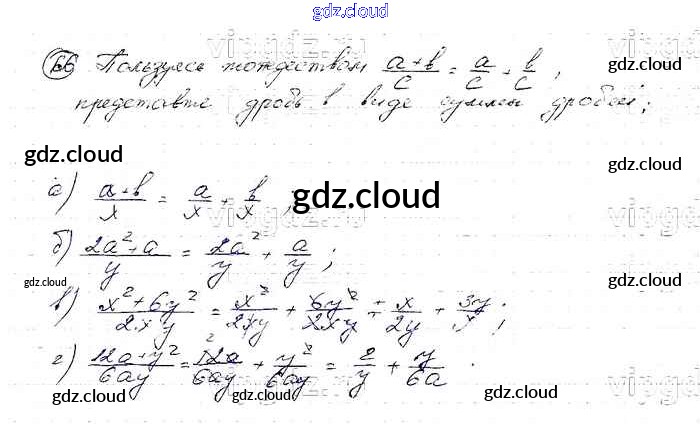 gdz.cloud
66 Пользуясь тождеством (a+b)/c = a/c + b/c, gdz.cloud
представьте дробь в виде суммы дробей;
gdz.cloud
gdz.cloud
а) (a+b)/x = a/x + b/x ; gdz.cloud
б) (2a²+a)/y = 2a²/y + a/y ;
gdz.cloud gdz.cloud gdz.cloud
в) (x²+6y²)/2xy = x²/2xy + 6y²/2xy = x/2y + 3y/x ;
г) (12a+y²)/6ay = 12a/6ay + y²/6ay = 2/y + y/6a .
gdz.cloud gdz.cloud gdz.cloud